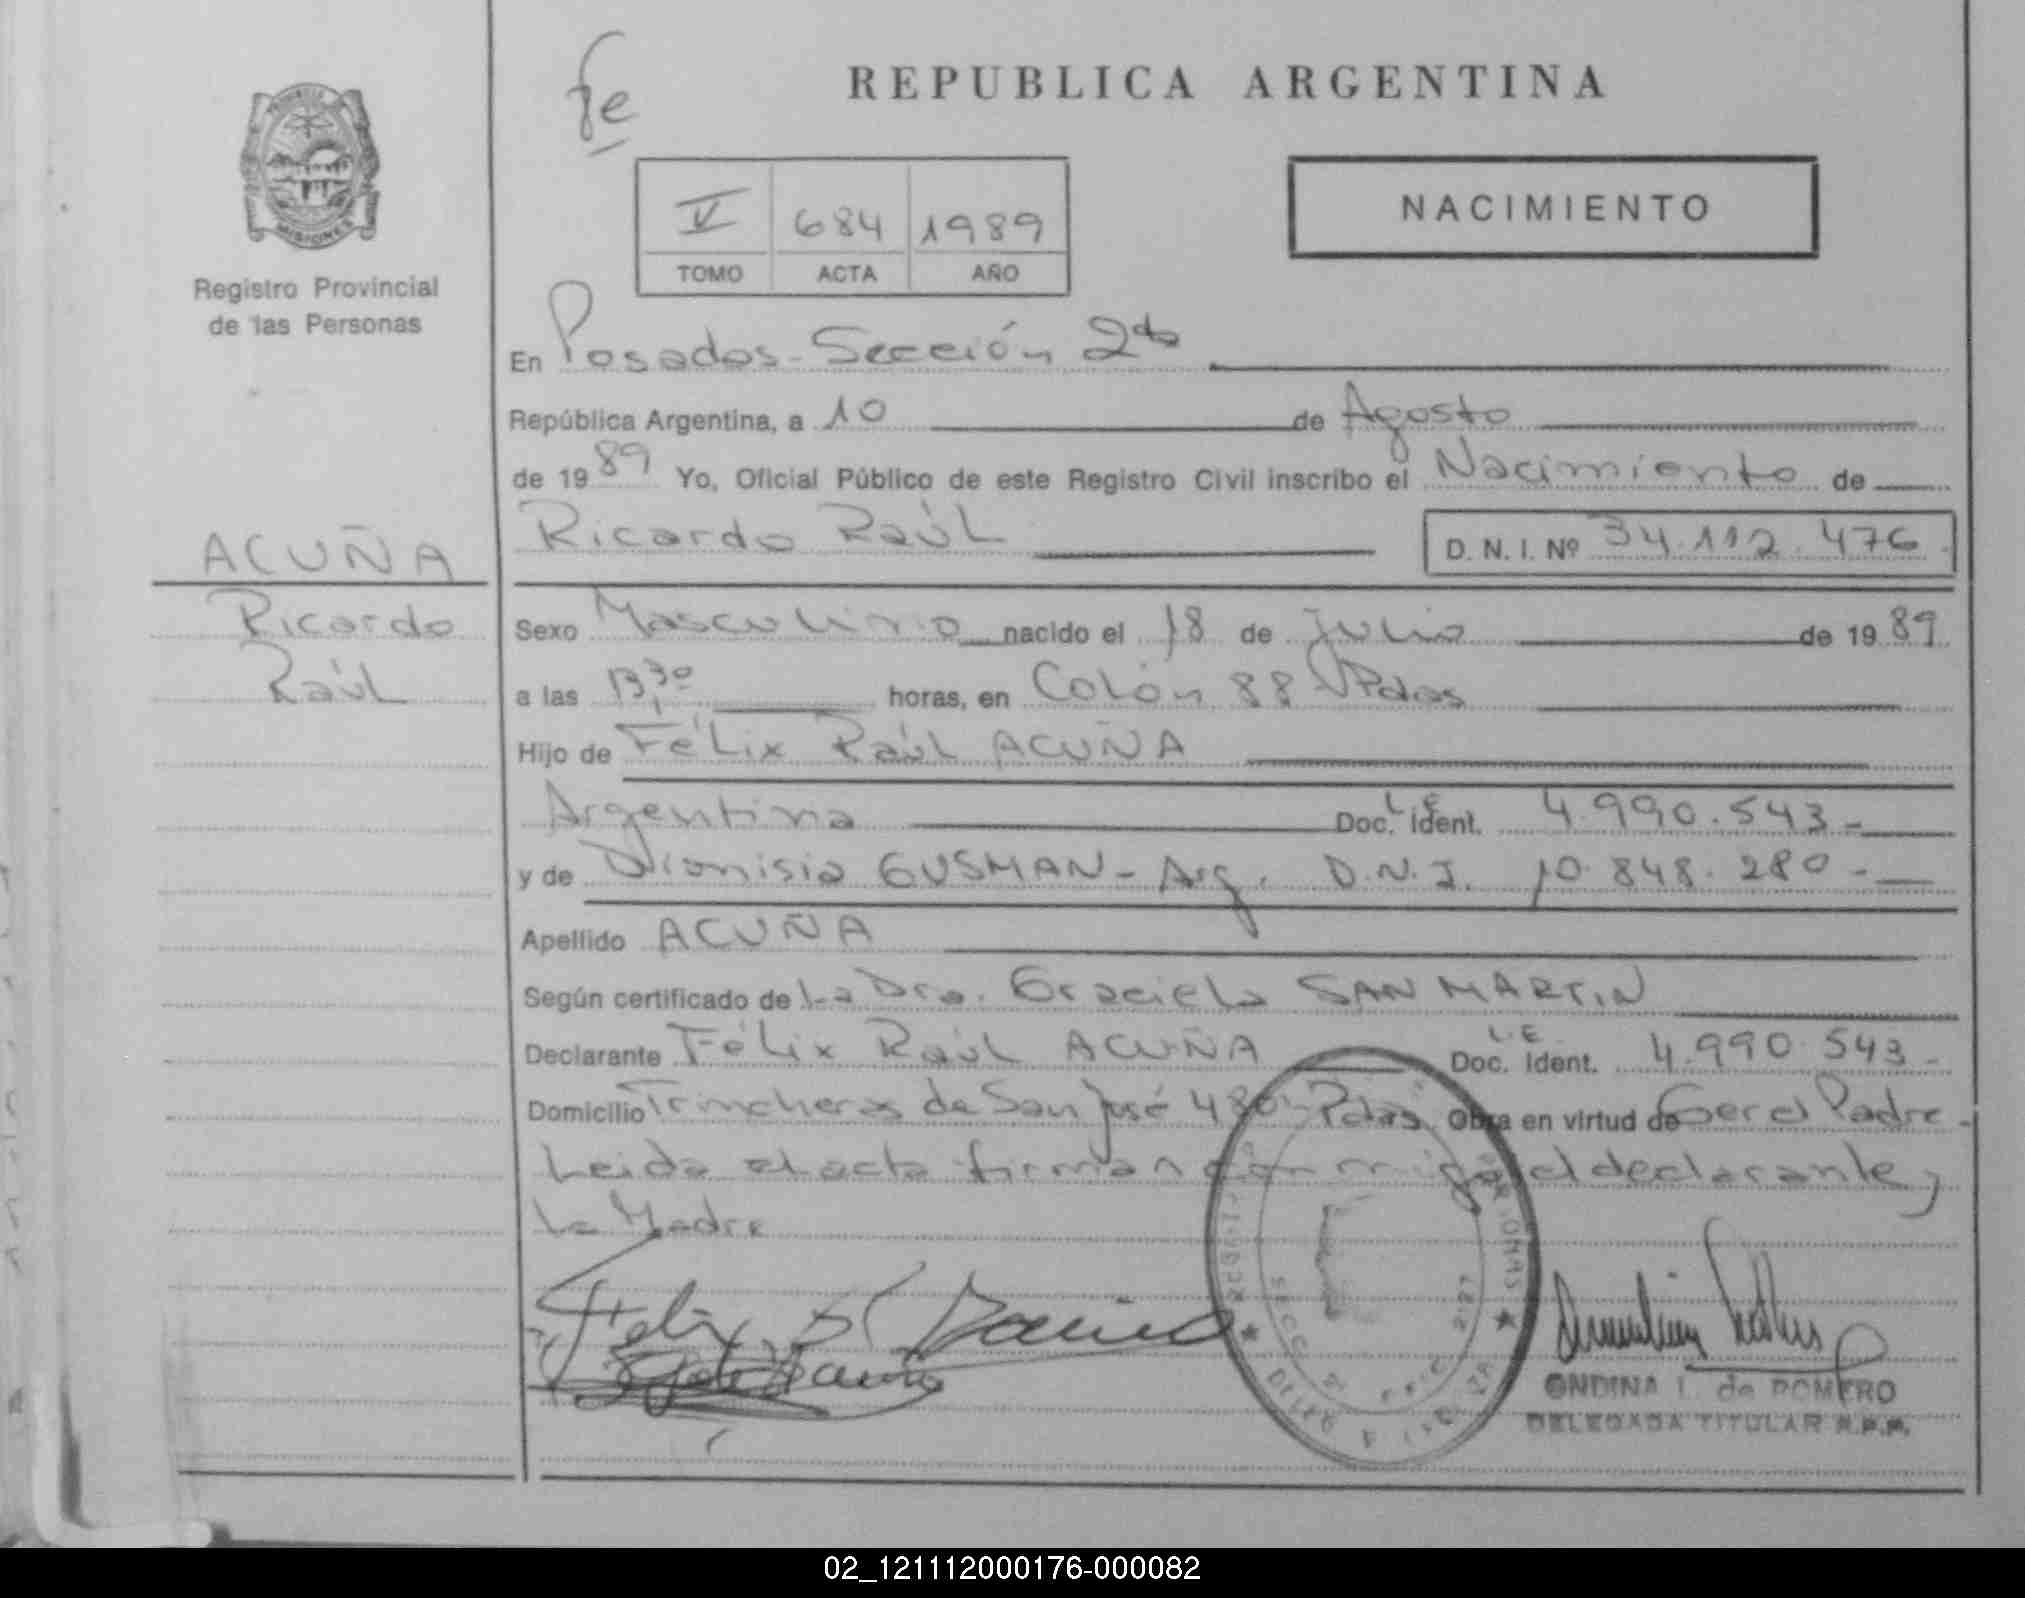 REPUBLICA ARGENTINA
NACIMIENTO
V 684 1989
TOMO ACTA AÑO
MISIONES
Registro Provincial
de las Personas
En Posadas - Sección 2da
República Argentina, a 10 de Agosto
de 1989 Yo, Oficial Público de este Registro Civil inscribo el Nacimiento de
Ricardo Raúl D. N. I. Nº 34.112.476
ACUÑA
Ricardo
Raúl
Sexo Masculino nacido el 18 de Julio de 1989
a las 13,30 horas, en Colón 88 Pdas
Hijo de Félix Raúl ACUÑA
Argentina Doc. Ident. L.E. 4.990.543-
y de Dionisia GUSMAN - Arg. D.N.I. 10.848.280-
Apellido ACUÑA
Según certificado de La Dra. Graciela SAN MARTIN
Declarante Félix Raúl ACUÑA Doc. Ident. L.E. 4.990.543-
Domicilio Trincheras de San José 480 - Pdas Obra en virtud de Ser el Padre-
Leida el acta firman con migo el declarante y
La Madre
ONDINA I. de ROMERO
DELEGADA TITULAR R.P.P.
02_121112000176-000082